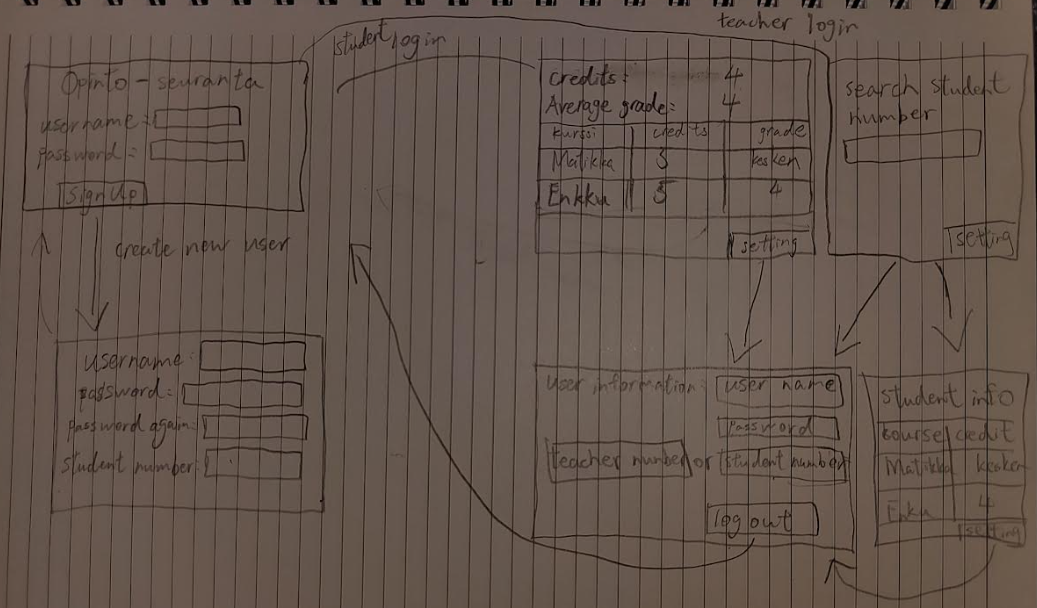 teacher login
student login
Opinto-seuranta
username:
password:
Sign Up
create new user
username:
password:
password again:
student number:
credits: 4
Average grade: 4
kurssi credits grade
Matikka 3 kesken
Enkku 5 4
setting
search student
number
setting
user information: user name
password
teacher number or student number
log out
student info
course credit
Matikka kesken
Enku 4
setting